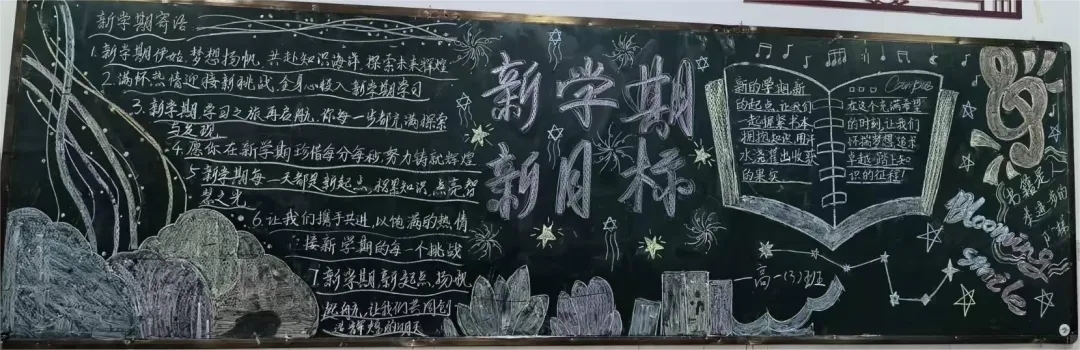 新学期寄语
1.新学期伊始,梦想扬帆,共赴知识海洋,探索未来辉煌
2.满怀热情迎接新挑战,全身心投入新学期学习
3.新学期学习之旅再启航,你每一步都充满探索
与发现
4.愿你在新学期珍惜每分每秒,努力铸就辉煌
5.新学期每一天都是新起点,积累知识,点亮智
慧之光
6.让我们携手共进,以饱满的热情
迎接新学期的每一个挑战
7.新学期,新起点,扬帆
起航,让我们共同创
造辉煌的明天
新学期
新目标
新的学期,新
的起点,让我们
一起握紧书本
拥抱起点,用汗
水浇灌出收获
的果实
Campus
在这个充满希望
的时刻,让我们
怀揣梦想追求
卓越,踏上知
识的征程!
—高一(3)班
书籍是人
类进步的
阶梯
Blooming
smile